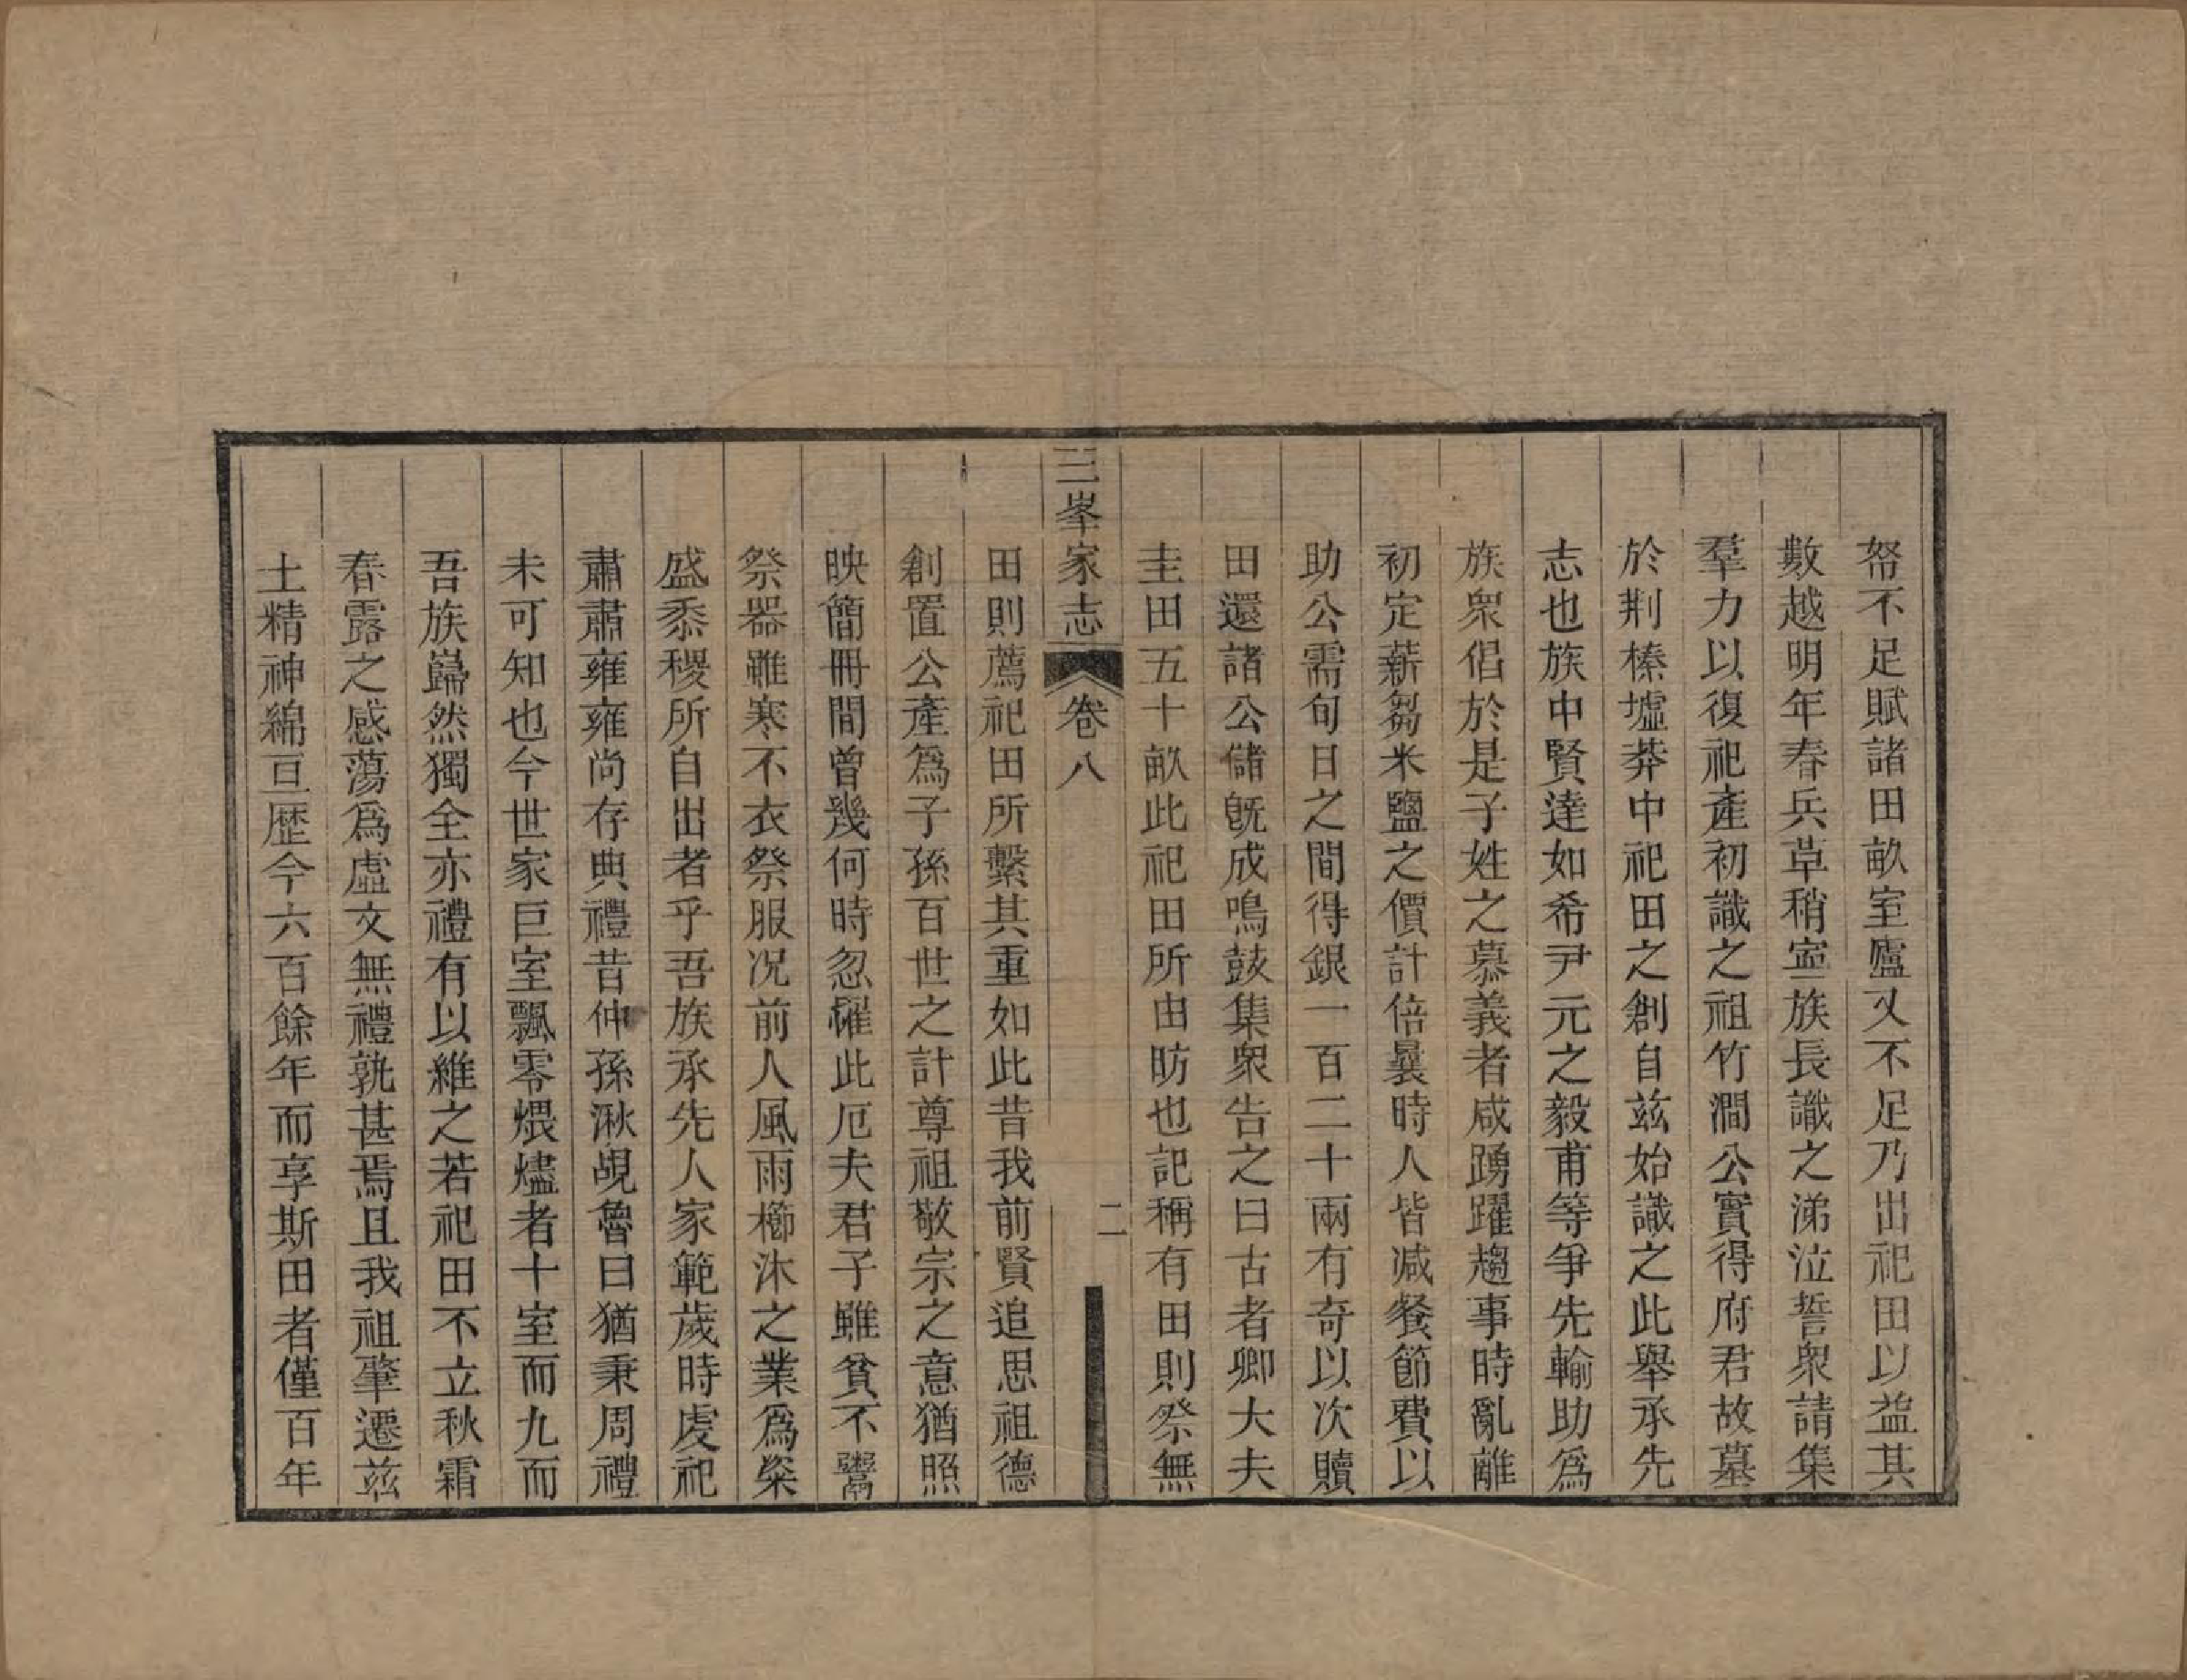 帑不足賦諸田畝室廬又不足乃出祀田以益其
數越明年春兵草稍寍族長識之涕泣誓衆請集
羣力以復祀產初識之祖竹澗公實得府君故墓
於荆榛墟莽中祀田之創自茲始識之此舉承先
志也族中賢達如希尹元之毅甫等爭先輸助爲
族衆倡於是子姓之慕義者咸踴躍趨事時亂離
初定薪芻米鹽之價計倍曩時人皆减餐節費以
助公需旬日之間得銀一百二十兩有奇以次贖
田還諸公儲旣成鳴鼓集衆告之曰古者卿大夫
圭田五十畝此祀田所由昉也記稱有田則祭無
三峯家志 卷八 二
田則薦祀田所繫其重如此昔我前賢追思祖德
創置公產爲子孫百世之計尊祖敬宗之意猶照
映簡冊間曾幾何時忽罹此厄夫君子雖貧不鬻
祭器雖寒不衣祭服况前人風雨櫛沐之業爲粢
盛黍稷所自出者乎吾族承先人家範歲時虔祀
肅肅雍雍尚存典禮昔仲孫湫覘魯曰猶秉周禮
未可知也今世家巨室飄零煨燼者十室而九而
吾族巋然獨全亦禮有以維之若祀田不立秋霜
春露之感蕩爲虛文無禮孰甚焉且我祖肇遷茲
土精神綿亘歷今六百餘年而享斯田者僅百年